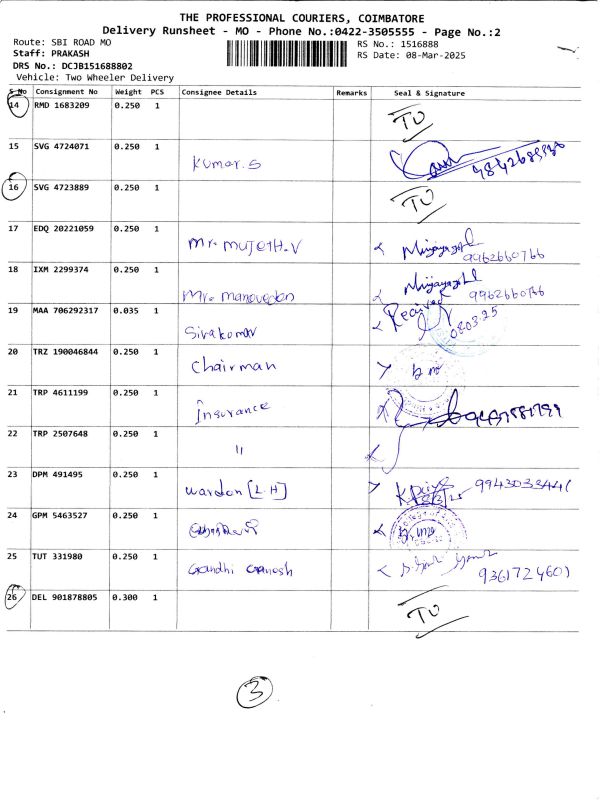 THE PROFESSIONAL COURIERS, COIMBATORE
Delivery Runsheet - MO - Phone No.:0422-3505555 - Page No.:2
Route: SBI ROAD MO
RS No.: 1516888
Staff: PRAKASH
RS Date: 08-Mar-2025
DRS No.: DCJB151688802
Vehicle: Two Wheeler Delivery
S No Consignment No Weight PCS Consignee Details Remarks Seal & Signature
14 RMD 1683209 0.250 1 TO
15 SVG 4724071 0.250 1 Kumar.S
16 SVG 4723889 0.250 1 TO
17 EDQ 20221059 0.250 1 Mr. MUJETH.V 9962660766
18 IXM 2299374 0.250 1 Mr. 9962660766
19 MAA 706292317 0.035 1 Sivakumar Received 08.03.25
20 TRZ 190046844 0.250 1 Chairman
21 TRP 4611199 0.250 1 Insurance
22 TRP 2507648 0.250 1 "
23 DPM 491495 0.250 1 Warden [L.H] 8/3/25 9943033441
24 GPM 5463527 0.250 1
25 TUT 331980 0.250 1 Gandhi Ganesh 9361724601
26 DEL 901878805 0.300 1 TO
3